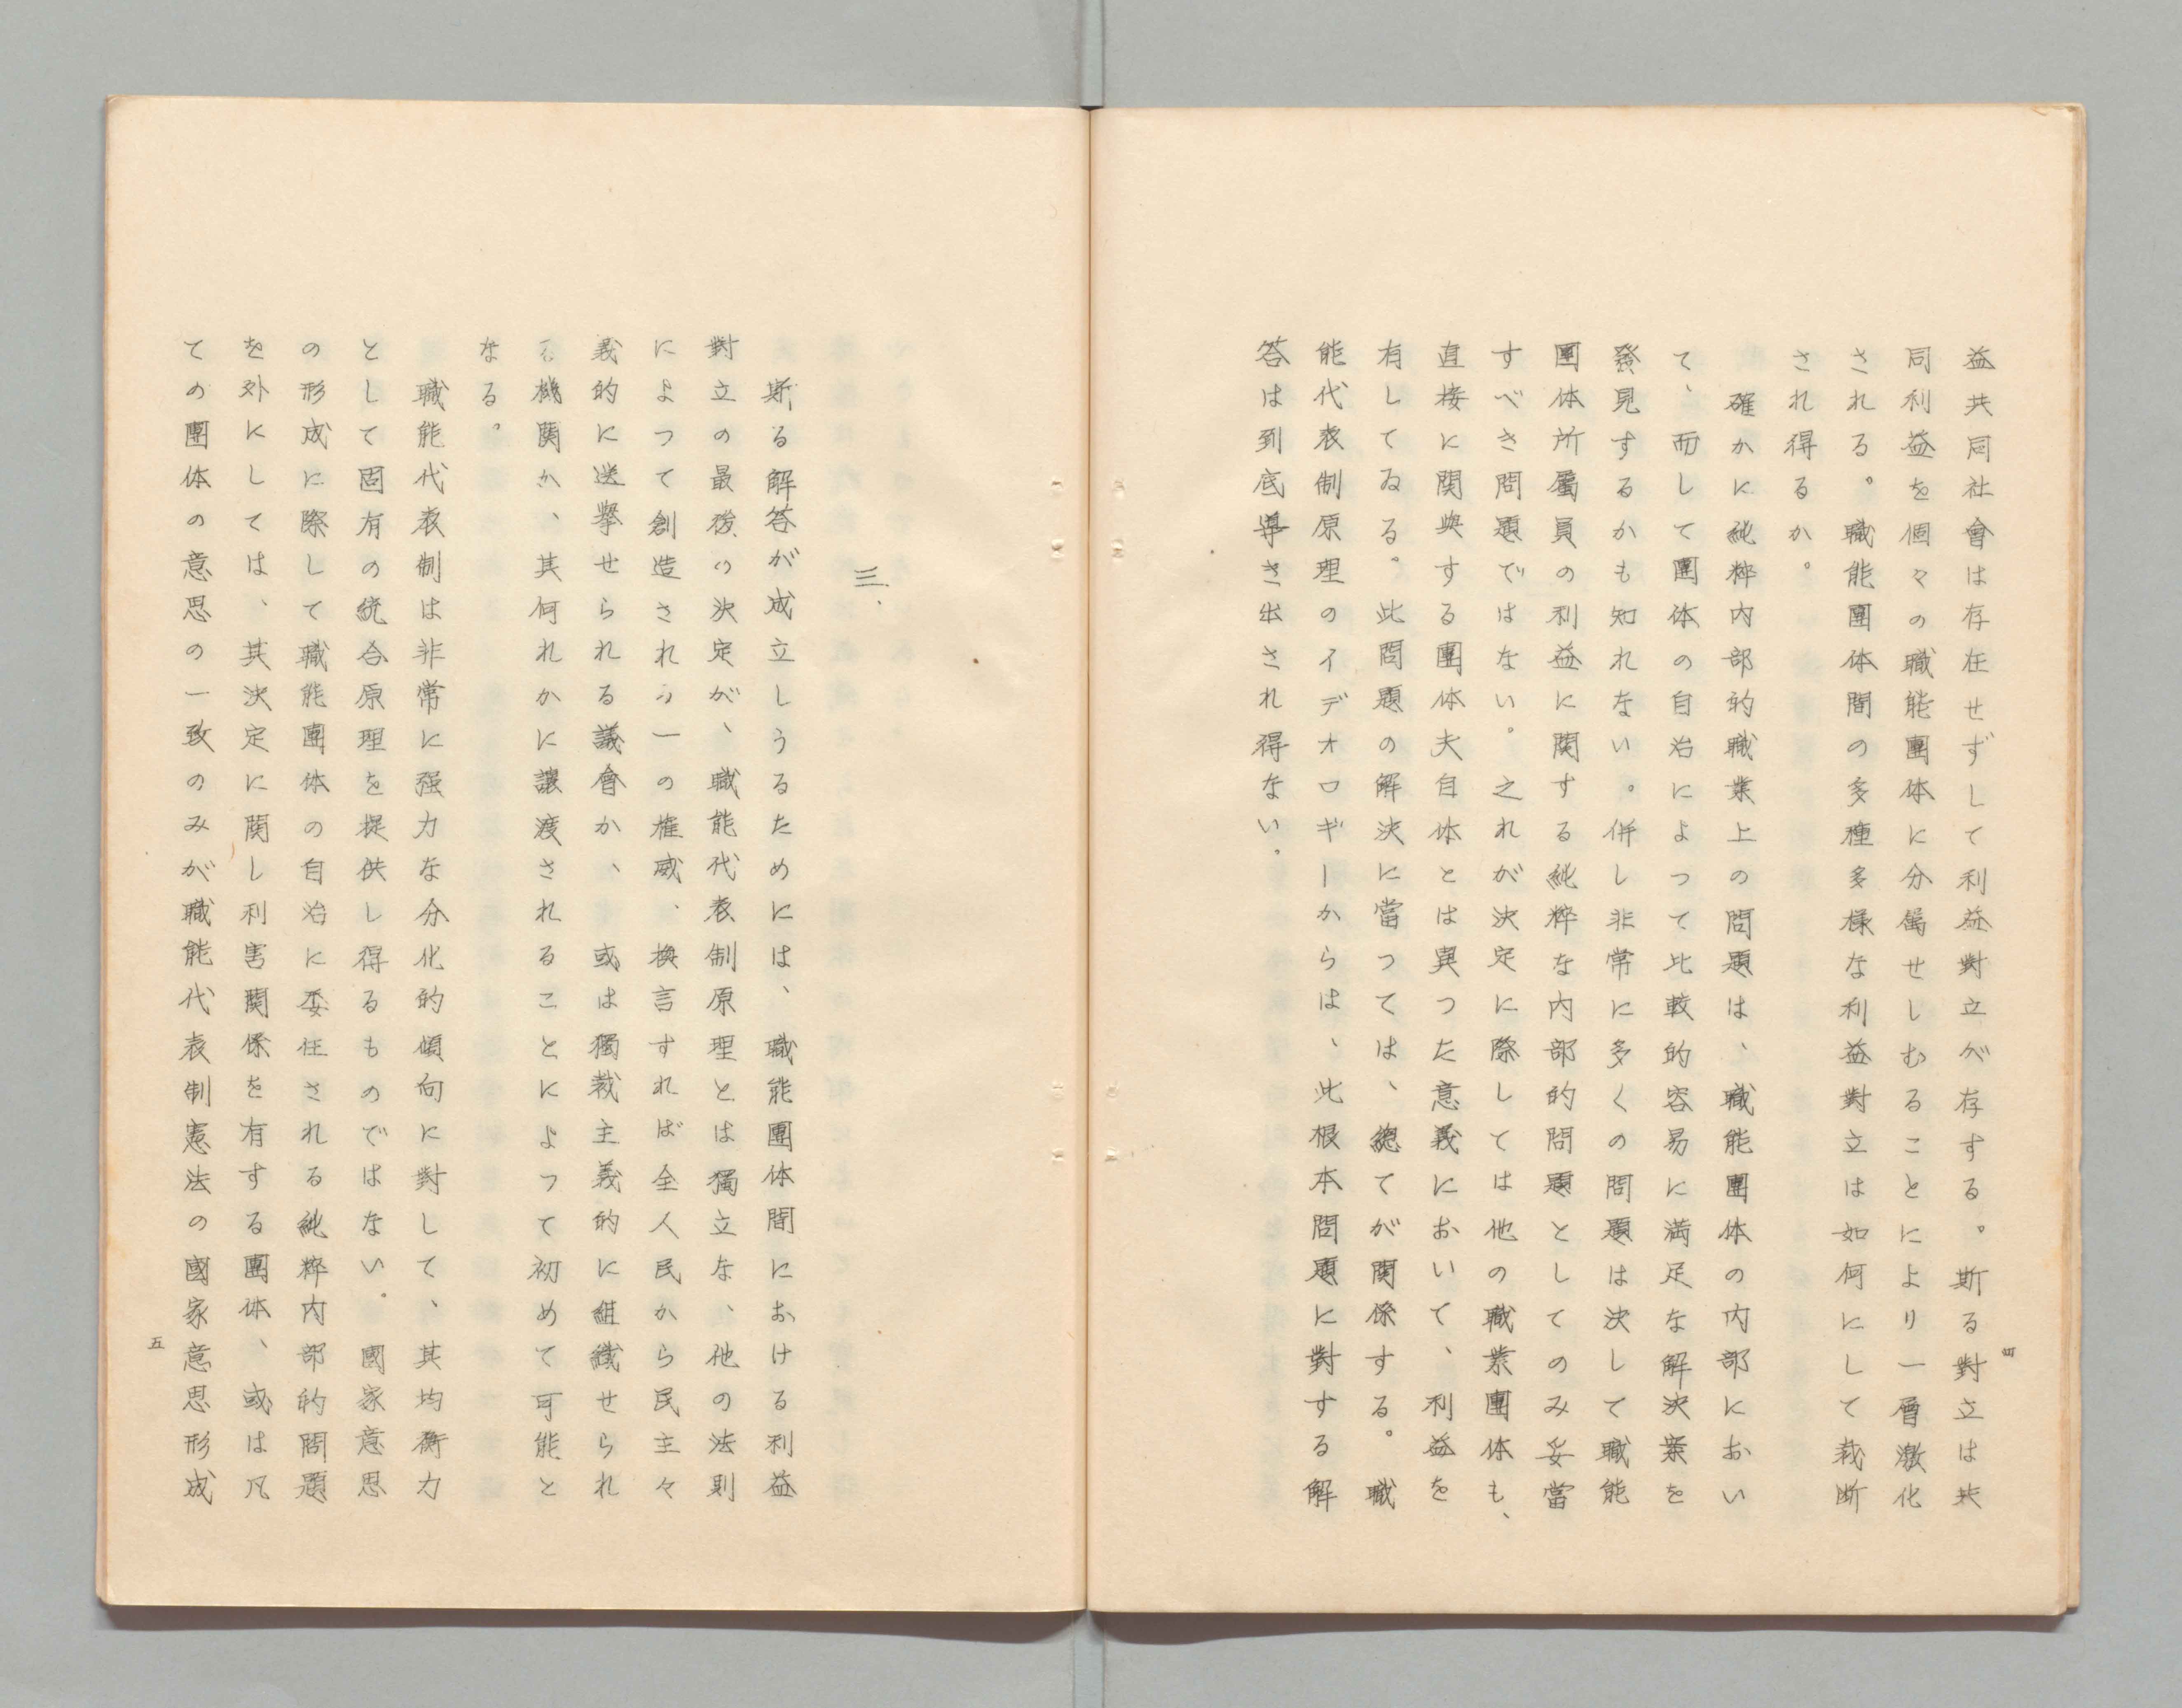 益共同社會は存在せずして利益對立が存する。斯る對立は共
同利益を個々の職能團体に分屬せしむることにより一層激化
される。職能團体間の多種多樣な利益對立は如何にして裁断
され得るか。
確かに純粹内部的職業上の問題は、職能團体の内部におい
て、而して團体の自治によつて比較的容易に満足な解決案を
發見するかも知れない。併し非常に多くの問題は決して職能
團体所屬員の利益に関する純粹な内部的問題としてのみ妥當
すべき問題ではない。之れが決定に際しては他の職業團体も、
直接に関與する團体夫自体とは異つた意義において、利益を
有してゐる。此問題の解決に當つては、總てが関係する。職
能代表制原理のイデオロギーからは、此根本問題に對する解
答は到底導き出され得ない。
四
三、
斯る解答が成立しうるためには、職能團体間における利益
對立の最後の決定が、職能代表制原理とは獨立な、他の法則
によつて創造されう一の権威、換言すれば全人民から民主々
義的に選擧せられる議會か、或は獨裁主義的に組織せられ
る機関か、其何れかに讓渡されることによつて初めて可能と
なる。
職能代表制は非常に强力な分化的傾向に對して、其均衡力
として固有の統合原理を提供し得るものではない。國家意思
の形成に際して職能團体の自治に委任される純粹内部的問題
を外にしては、其決定に関し利害関係を有する團体、或は凡
ての團体の意思の一致のみが職能代表制憲法の國家意思形成
五